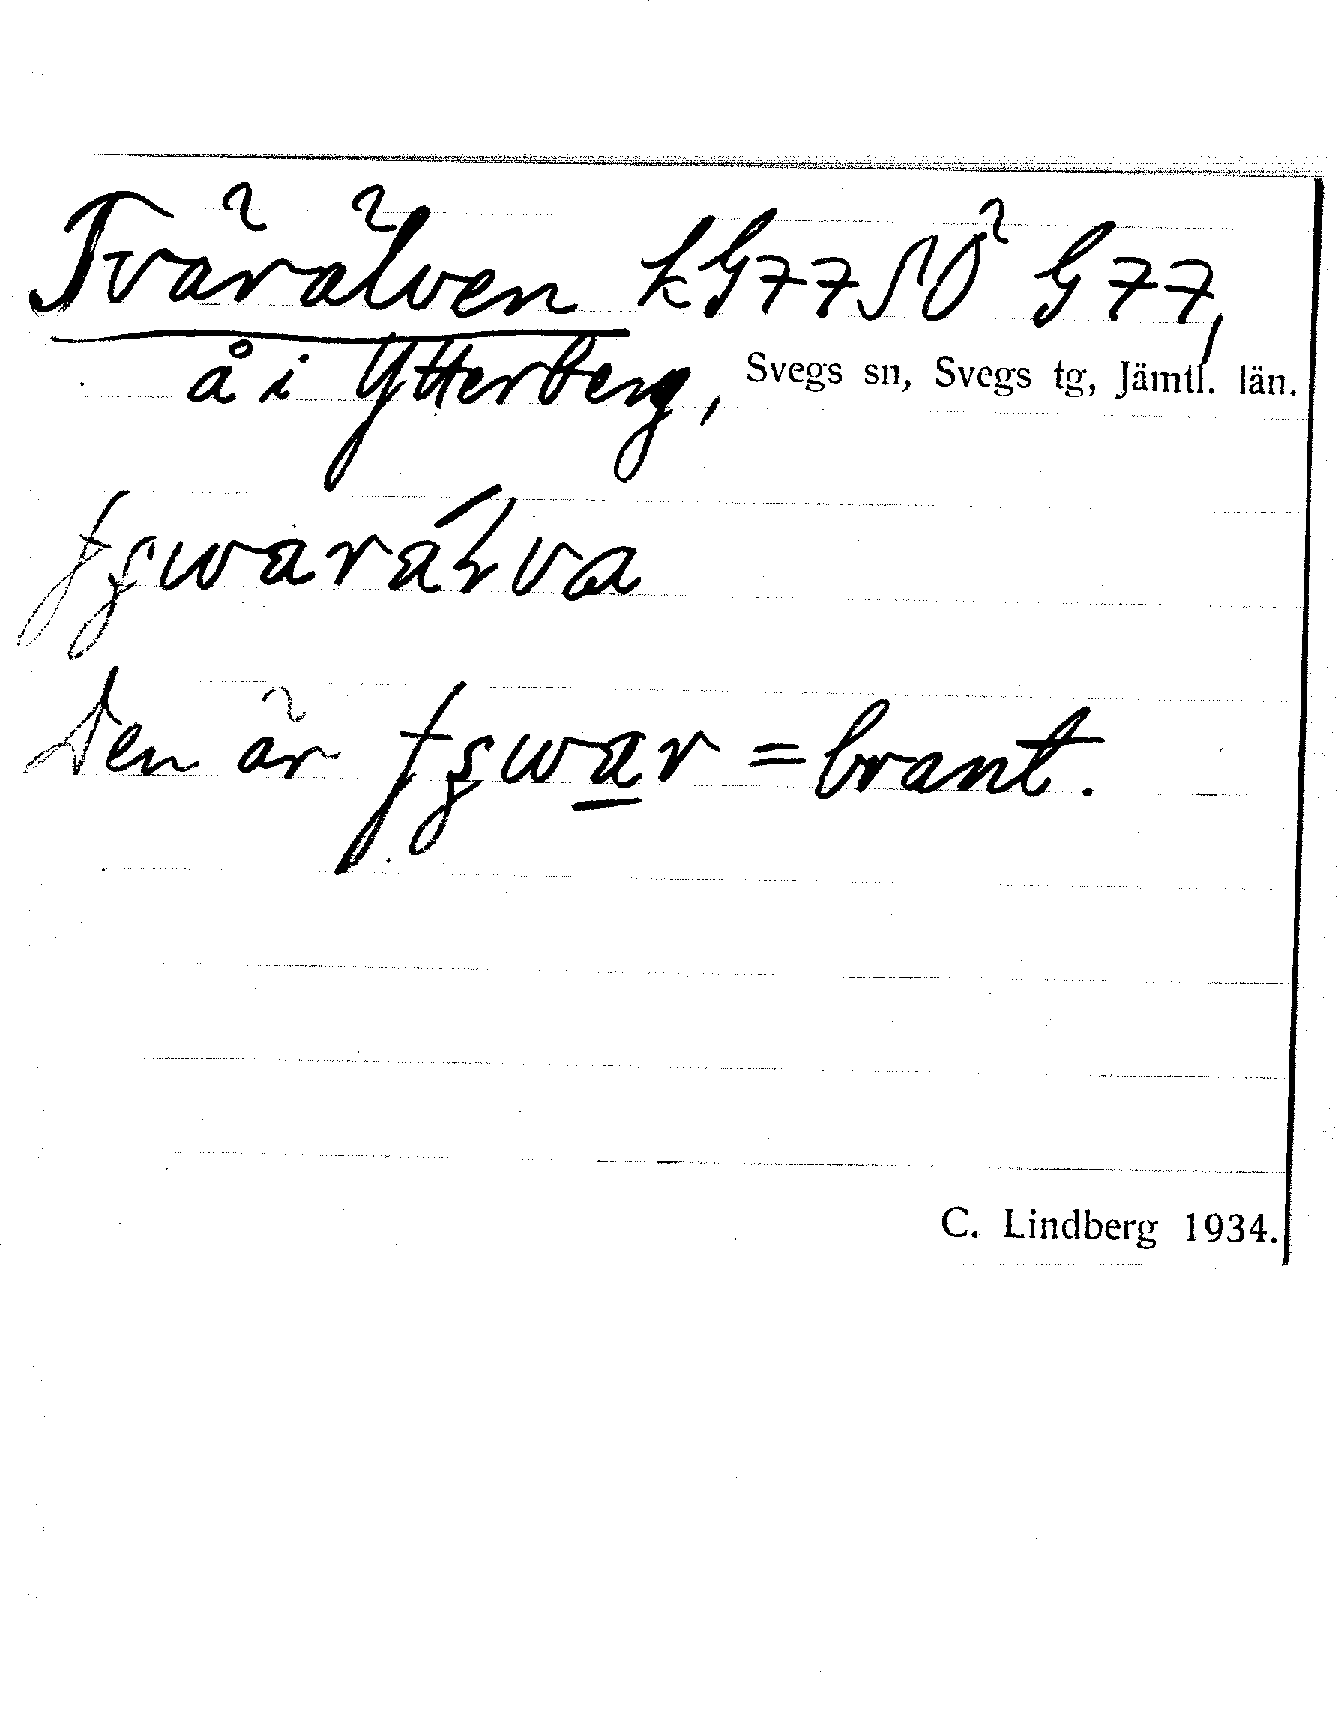 Tvärälven kG77SÖ G77,
å i Ytterberg, Svegs sn, Svegs tg, Jämtl. län.
Den är = brant.
C. Lindberg 1934.